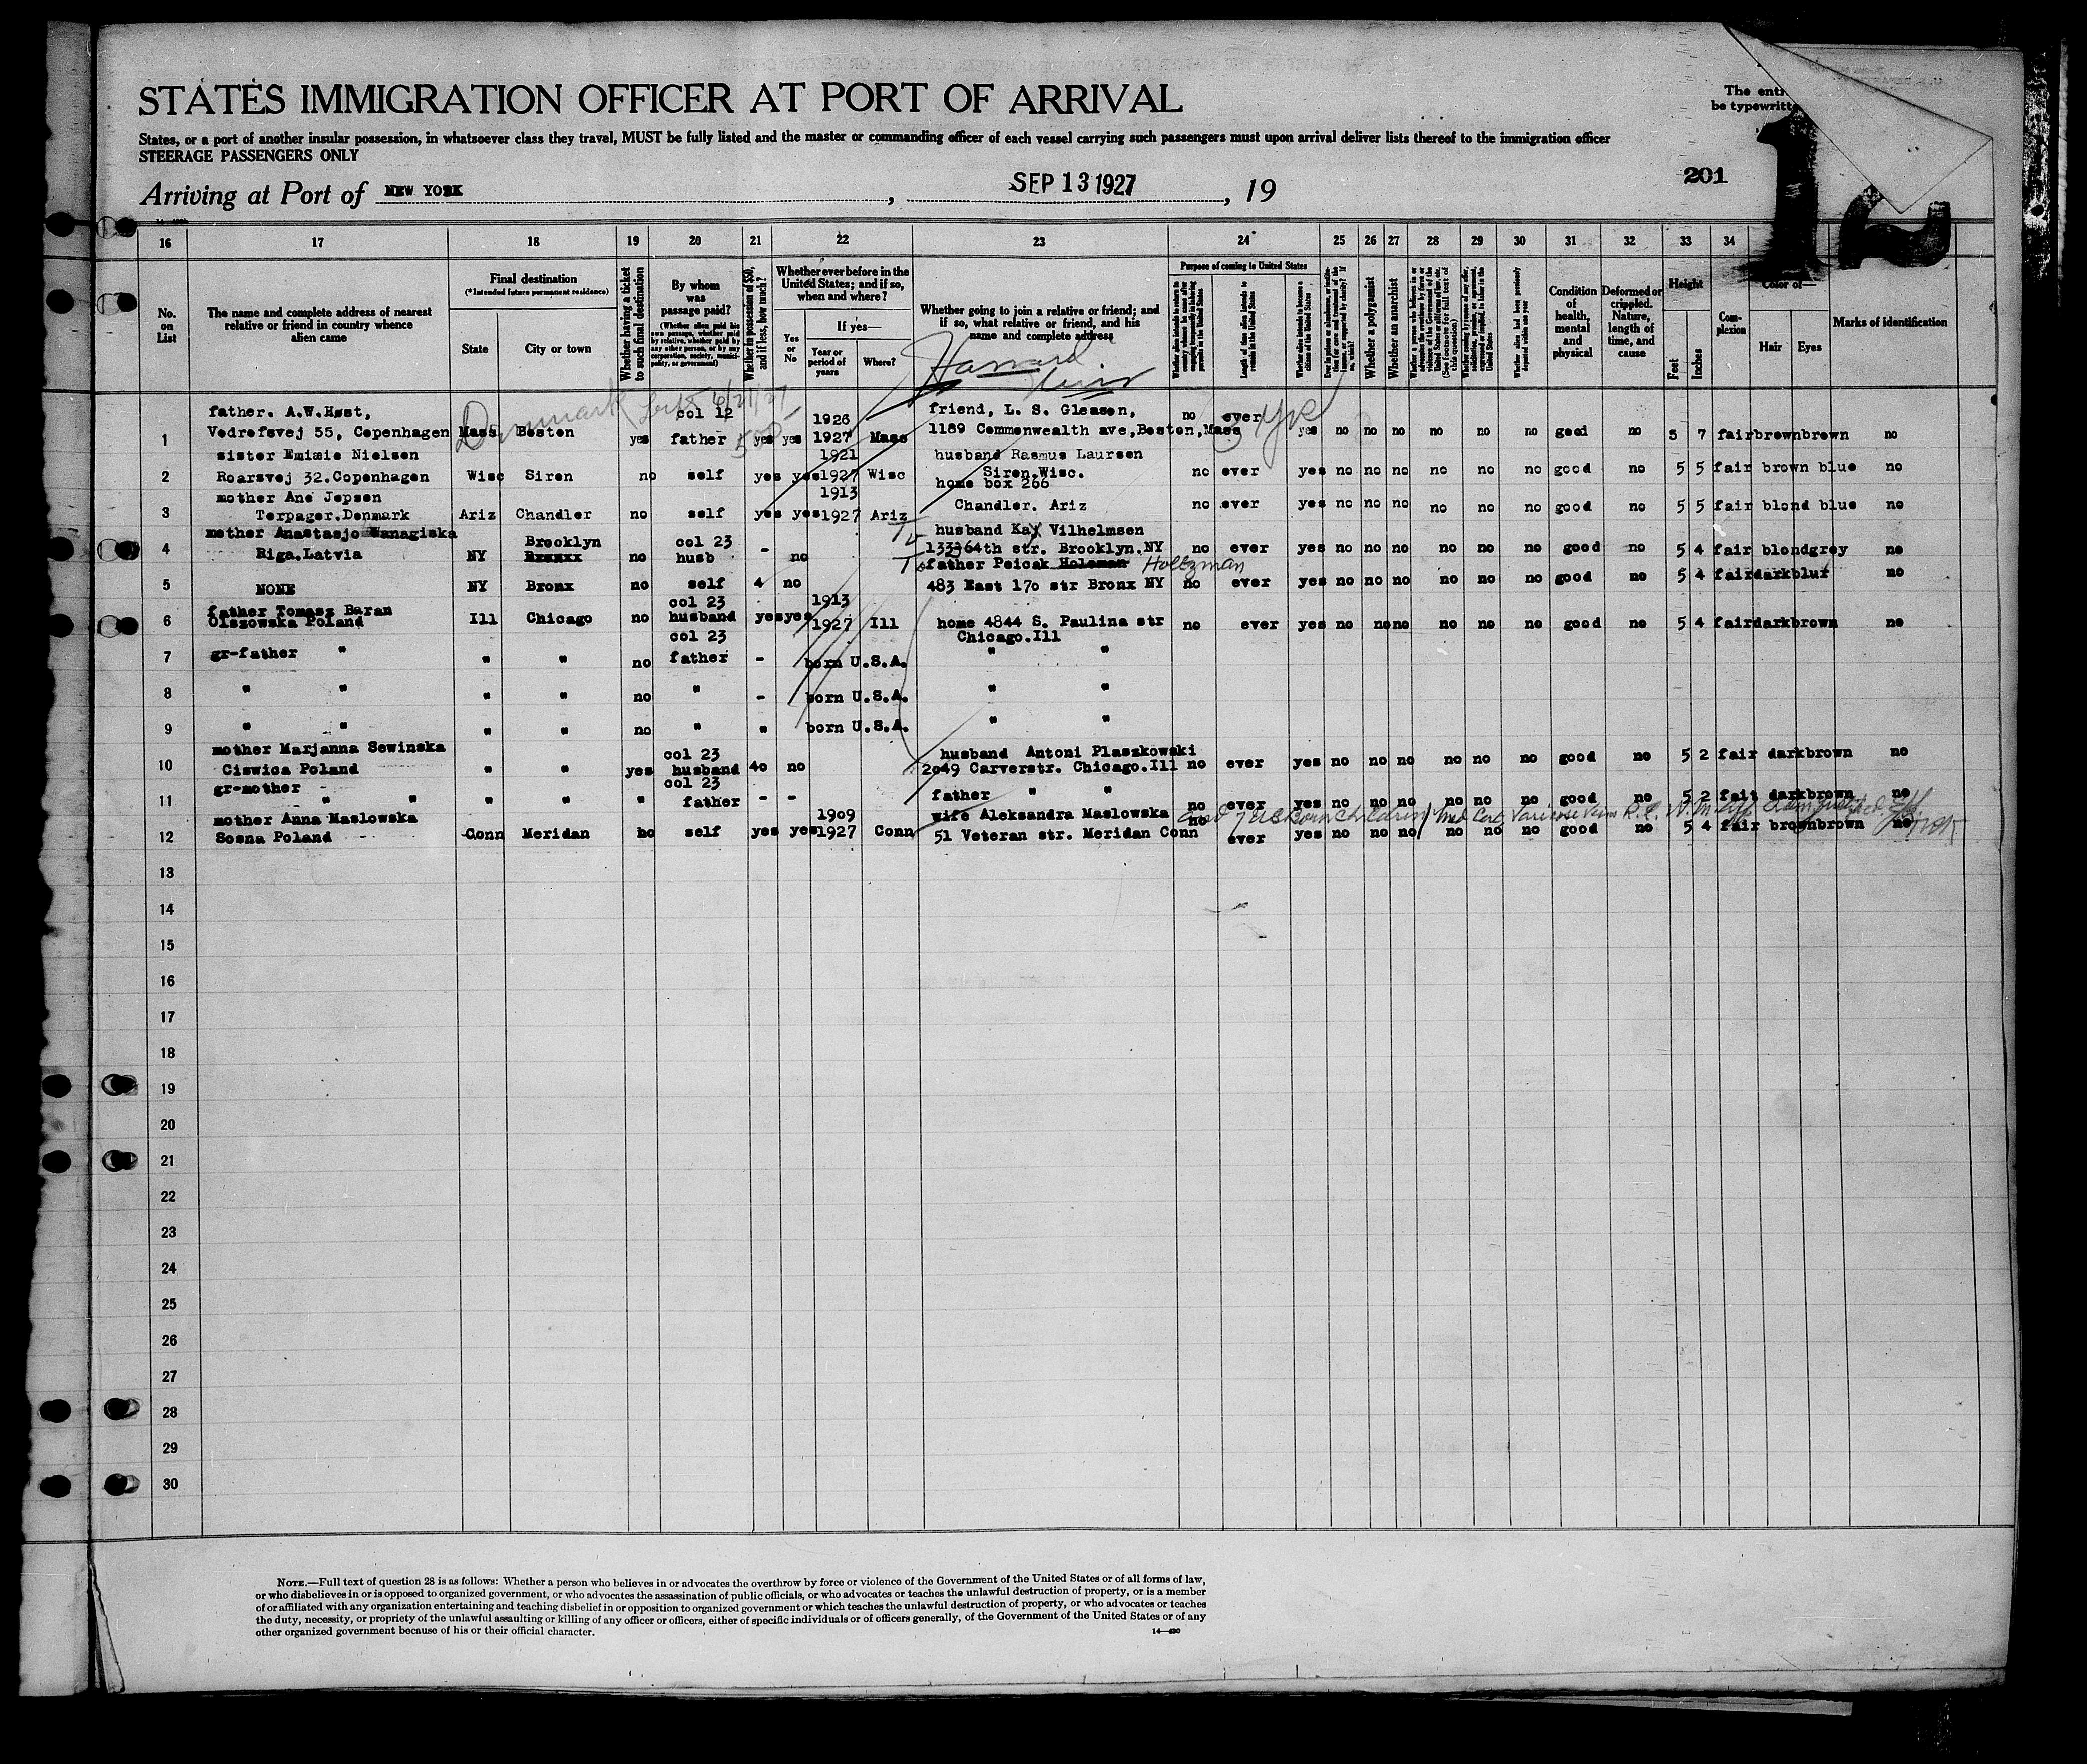 STATES IMMIGRATION OFFICER AT PORT OF ARRIVAL
The entr
be typewritte
States, or a port of another insular possession, in whatsoever class they travel, MUST be fully listed and the master or commanding officer of each vessel carrying such passengers must upon arrival deliver lists thereof to the immigration officer
STEERAGE PASSENGERS ONLY
201
Arriving at Port of NEW YORK, SEP 13 1927, 19
16 17 18 19 20 21 22 23 24 25 26 27 28 29 30 31 32 33 34
No. on List
The name and complete address of nearest relative or friend in country whence alien came
Final destination
(*Intended future permanent residence)
State
City or town
Whether having a ticket to such final destination
By whom was passage paid?
(Whether alien paid his own passage, whether paid by relative, whether paid by any other person, or by any corporation, society, municipality, or government)
Whether in possession of $50, and if less, how much?
Whether ever before in the United States; and if so, when and where?
Yes or No
If yes—
Year or period of years
Where?
Whether going to join a relative or friend; and if so, what relative or friend, and his name and complete address
Purpose of coming to United States
Length of time alien intends to remain in the United States
Whether alien intends to become a citizen of the United States
Whether a polygamist
Whether an anarchist
Whether alien had been previously deported within one year
Condition of health, mental and physical
Deformed or crippled. Nature, length of time, and cause
Height
Feet
Inches
Complexion
Color of—
Hair
Eyes
Marks of identification
Denmark
500
3 yrs
1 father. A.W.Høst, Vedrefsvej 55, Copenhagen Mass Boston yes col 12 father yes yes 1926 1927 Mass friend, L. S. Gleason, 1189 Commonwealth ave,Boston,Mass no ever yes no no no no no no good no 5 7 fair brown brown no
2 sister Emiæie Nielsen Roarsvej 32.Copenhagen Wisc Siren no self yes yes 1921 1927 Wisc husband Rasmus Laursen Siren,Wisc. no ever yes no no no no no no good no 5 5 fair brown blue no
3 mother Ane Jepsen Terpager.Denmark Ariz Chandler no self yes yes 1913 1927 Ariz home box 266 Chandler. Ariz no ever yes no no no no no no good no 5 5 fair blond blue no
4 mother Anastasjo Wanagiska Riga.Latvia NY Brooklyn no col 23 husb - no husband Kay Vilhelmsen 1333 64th str. Brooklyn.NY no ever yes no no no no no no good no 5 4 fair blond grey no
5 NONE NY Bronx no self 4 no father Peicak Holeman Holtzman 483 East 17o str Bronx NY no ever yes no no no no no no good no 5 4 fair dark blur no
6 father Tomasz Baran Olszowska Poland Ill Chicago no col 23 husband yes yes 1913 1927 Ill home 4844 S. Paulina str Chicago.Ill no ever yes no no no no no no good no 5 4 fair dark brown no
7 gr-father " " " no col 23 father - born U.S.A. " "
8 " " " " no " - born U.S.A. " "
9 " " " " no " " born U.S.A. " "
10 mother Marjanna Sewinska Ciswica Poland " " yes col 23 husband 4o no husband Antoni Plaszkowski 2o49 Carverstr. Chicago.Ill no ever yes no no no no no no good no 5 2 fair dark brown no
11 gr-mother " " " " " col 23 father - - father " " no ever yes no no no no no no good no 5 2 fait dark brown no
12 mother Anna Maslowska Sosna Poland Conn Meridan no self yes yes 1909 1927 Conn wife Aleksandra Maslowska 51 Veteran str. Meridan Conn no ever yes no no no no no no good no 5 4 fair brown brown no
13
14
15
16
17
18
19
20
21
22
23
24
25
26
27
28
29
30
NOTE.—Full text of question 28 is as follows: Whether a person who believes in or advocates the overthrow by force or violence of the Government of the United States or of all forms of law,
or who disbelieves in or is opposed to organized government, or who advocates the assassination of public officials, or who advocates or teaches the unlawful destruction of property, or is a member
of or affiliated with any organization entertaining and teaching disbelief in or opposition to organized government or which teaches the unlawful destruction of property, or who advocates or teaches
the duty, necessity, or propriety of the unlawful assaulting or killing of any officer or officers, either of specific individuals or of officers generally, of the Government of the United States or of any
other organized government because of his or their official character.
14—430